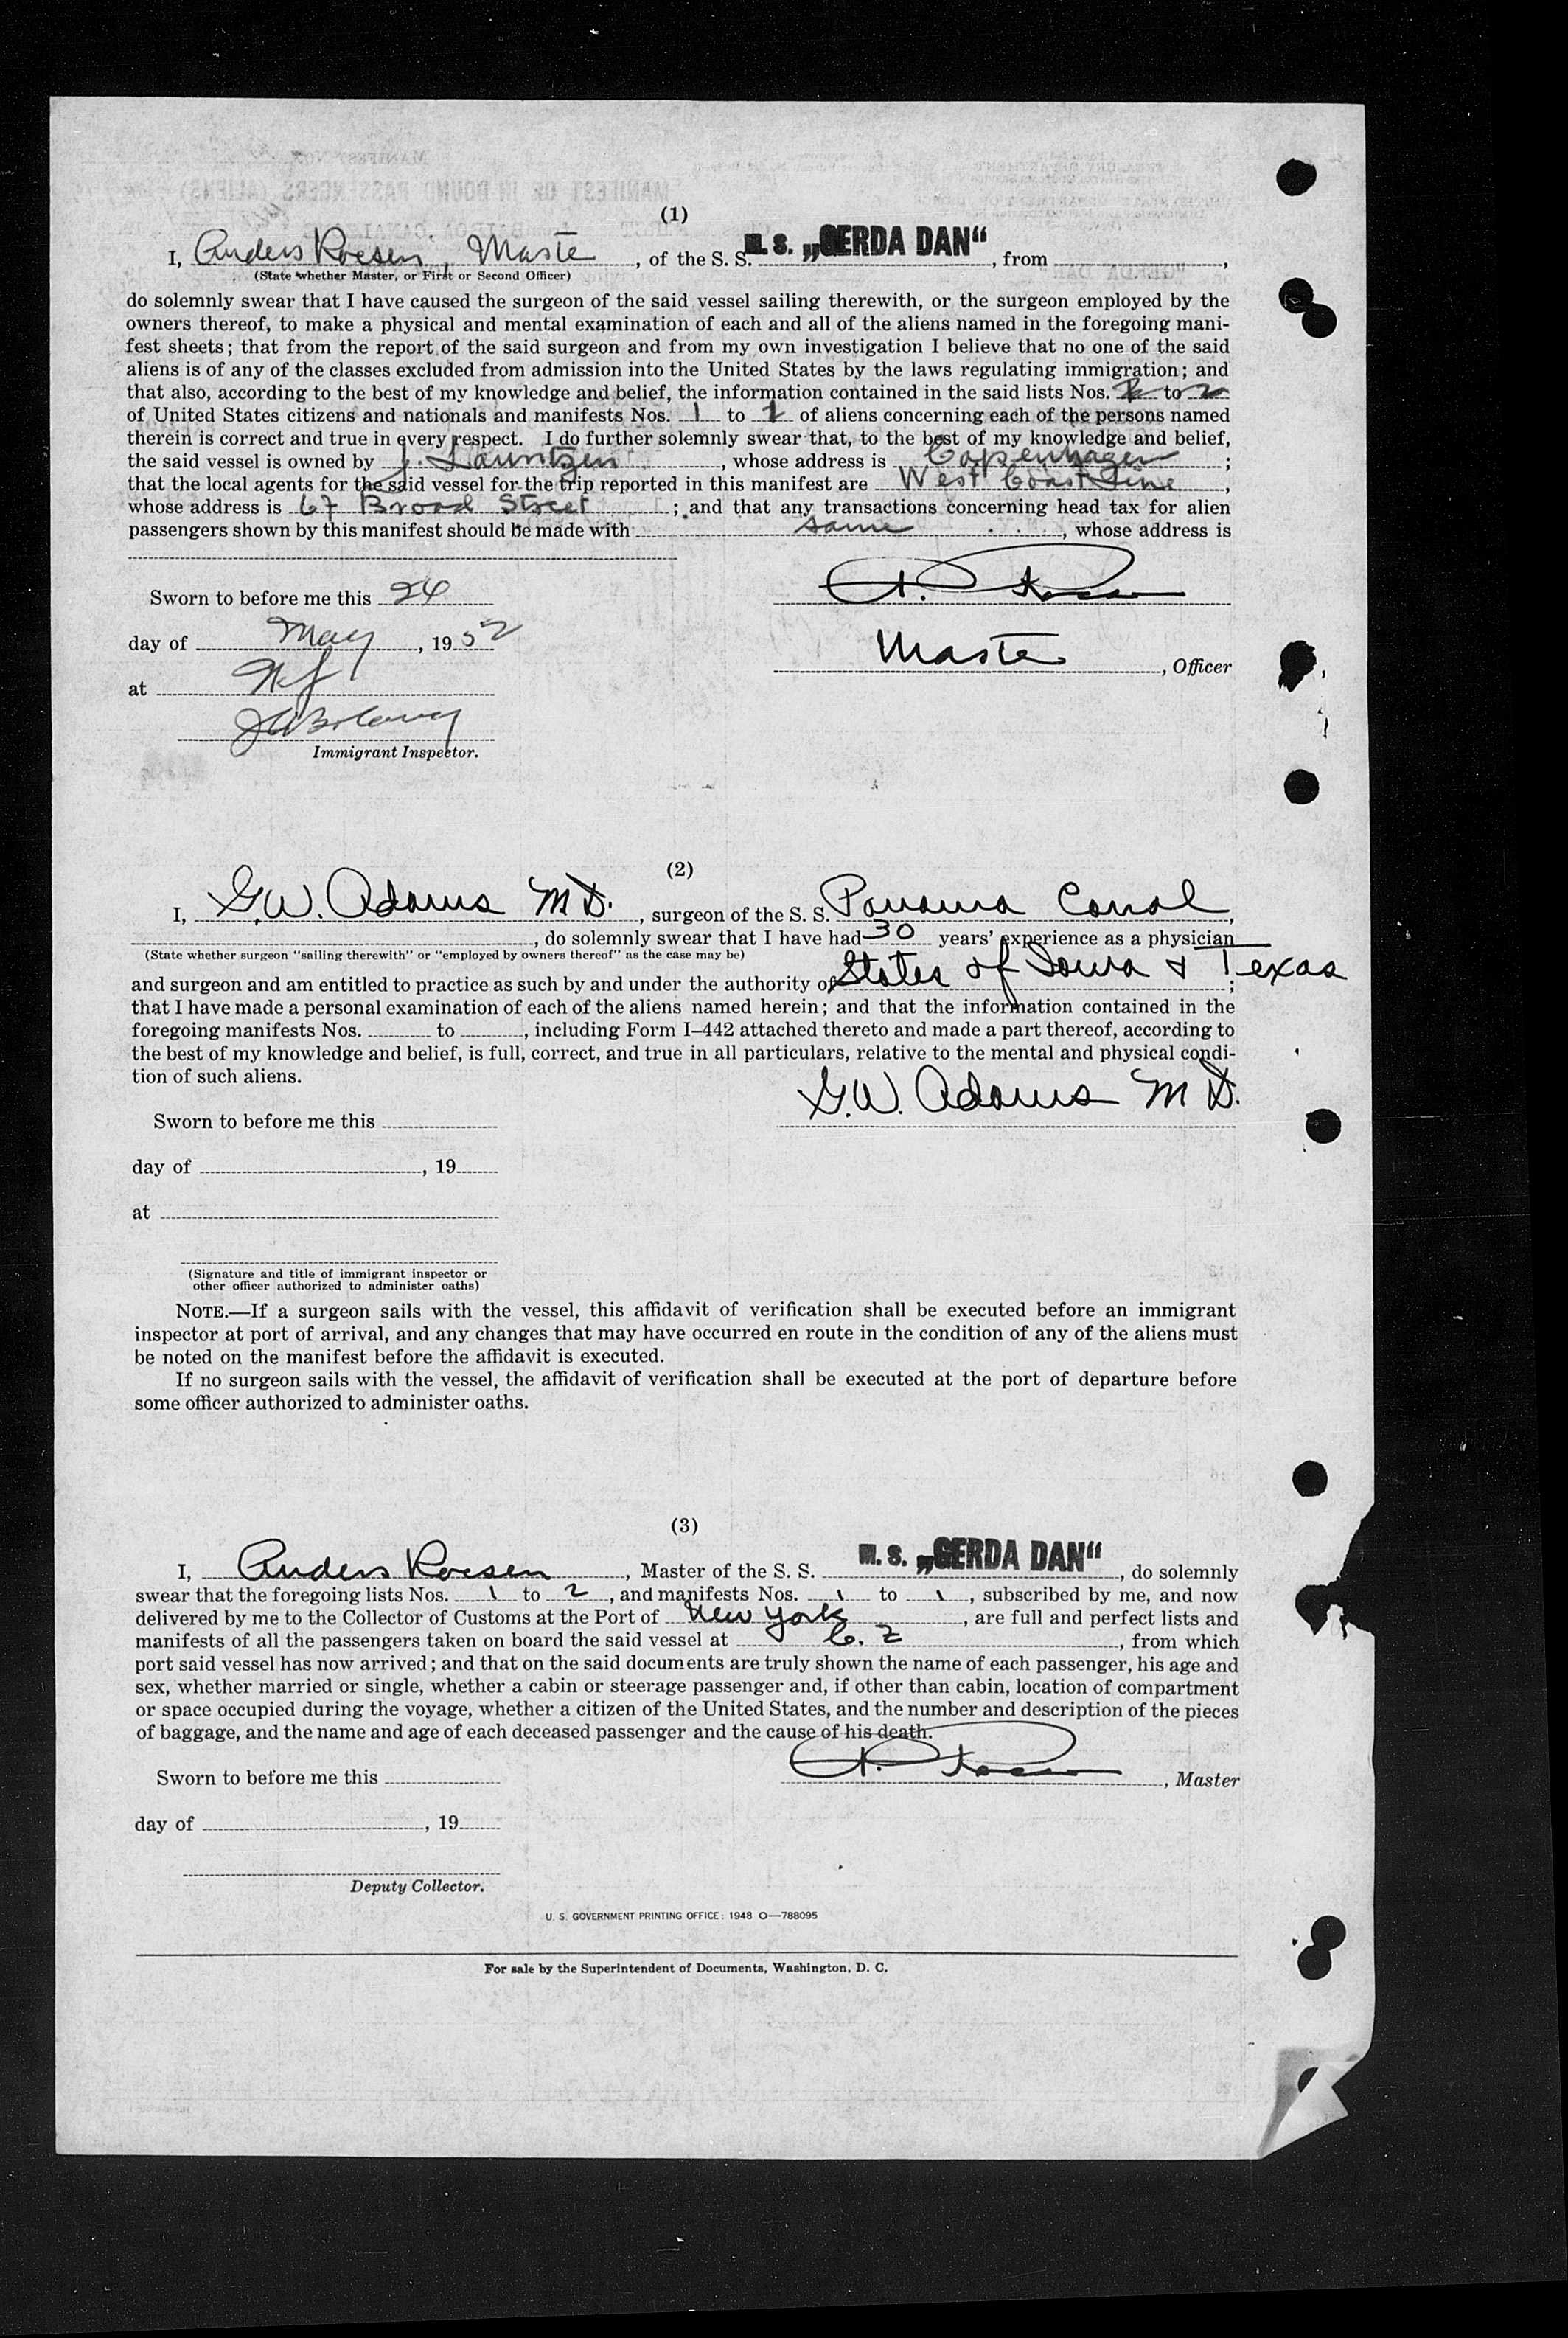 (1)
I, Anders Roesen, Master, of the S. S. M. S. „GERDA DAN“, from
(State whether Master, or First or Second Officer)
do solemnly swear that I have caused the surgeon of the said vessel sailing therewith, or the surgeon employed by the
owners thereof, to make a physical and mental examination of each and all of the aliens named in the foregoing mani-
fest sheets; that from the report of the said surgeon and from my own investigation I believe that no one of the said
aliens is of any of the classes excluded from admission into the United States by the laws regulating immigration; and
that also, according to the best of my knowledge and belief, the information contained in the said lists Nos. to 2
of United States citizens and nationals and manifests Nos. 1 to 1 of aliens concerning each of the persons named
therein is correct and true in every respect. I do further solemnly swear that, to the best of my knowledge and belief,
the said vessel is owned by J. Lauritzen, whose address is Copenhagen;
that the local agents for the said vessel for the trip reported in this manifest are West Coast Line,
whose address is 67 Broad Street; and that any transactions concerning head tax for alien
passengers shown by this manifest should be made with same, whose address is
Sworn to before me this 24
A. Roesen
day of May, 1952
Master, Officer
at NY
Immigrant Inspector.
(2)
I, G.W. Adams M.D., surgeon of the S. S. Panama Canal,
, do solemnly swear that I have had 30 years' experience as a physician
(State whether surgeon "sailing therewith" or "employed by owners thereof" as the case may be)
and surgeon and am entitled to practice as such by and under the authority of States of Iowa & Texas;
that I have made a personal examination of each of the aliens named herein; and that the information contained in the
foregoing manifests Nos. to , including Form I–442 attached thereto and made a part thereof, according to
the best of my knowledge and belief, is full, correct, and true in all particulars, relative to the mental and physical condi-
tion of such aliens.
G.W. Adams M D.
Sworn to before me this
day of , 19
at
(Signature and title of immigrant inspector or
other officer authorized to administer oaths)
NOTE.—If a surgeon sails with the vessel, this affidavit of verification shall be executed before an immigrant
inspector at port of arrival, and any changes that may have occurred en route in the condition of any of the aliens must
be noted on the manifest before the affidavit is executed.
If no surgeon sails with the vessel, the affidavit of verification shall be executed at the port of departure before
some officer authorized to administer oaths.
(3)
I, Anders Roesen, Master of the S. S. M. S. „GERDA DAN“, do solemnly
swear that the foregoing lists Nos. 1 to 2, and manifests Nos. 1 to 1, subscribed by me, and now
delivered by me to the Collector of Customs at the Port of New York, are full and perfect lists and
manifests of all the passengers taken on board the said vessel at C. Z, from which
port said vessel has now arrived; and that on the said documents are truly shown the name of each passenger, his age and
sex, whether married or single, whether a cabin or steerage passenger and, if other than cabin, location of compartment
or space occupied during the voyage, whether a citizen of the United States, and the number and description of the pieces
of baggage, and the name and age of each deceased passenger and the cause of his death.
Sworn to before me this
A. Roesen, Master
day of , 19
Deputy Collector.
U. S. GOVERNMENT PRINTING OFFICE: 1948 O—788095
For sale by the Superintendent of Documents, Washington, D. C.